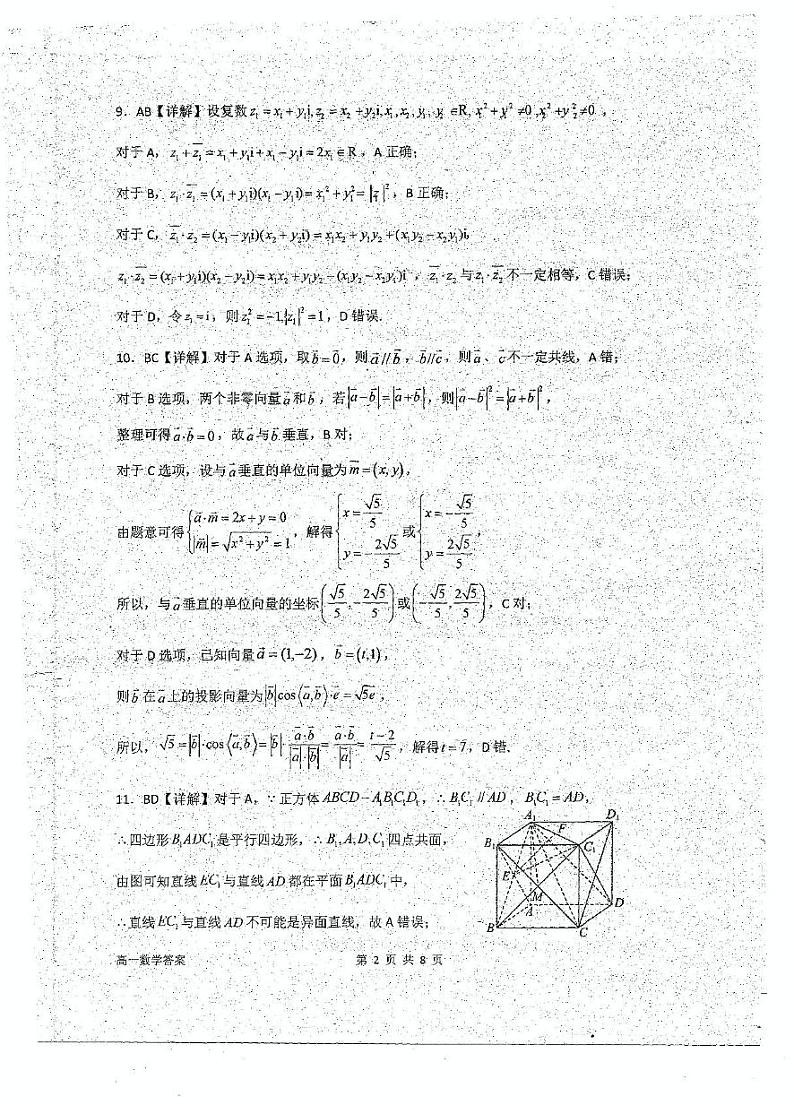 9. AB【详解】设复数z₁=x₁+y₁i,z₂=x₂+y₂i,x₁,x₂,y₁,y₂∈R,x₁²+y₁²≠0,x₂²+y₂²≠0,
对于A,z₁+z̄₁=x₁+y₁i+x₁-y₁i=2x₁∈R,A正确;
对于B,z₁·z̄₁=(x₁+y₁i)(x₁-y₁i)=x₁²+y₁²=|z₁|²,B正确;
对于C,z̄₁·z₂=(x₁-y₁i)(x₂+y₂i)=x₁x₂+y₁y₂+(x₁y₂-x₂y₁)i,
z₁·z̄₂=(x₁+y₁i)(x₂-y₂i)=x₁x₂+y₁y₂-(x₁y₂-x₂y₁)i,z̄₁·z₂与z₁·z̄₂不一定相等,C错误;
对于D,令z₁=i,则z₁²=-1,|z₁|²=1,D错误.
10. BC【详解】对于A选项,取b⃗=0⃗,则a⃗//b⃗,b⃗//c⃗,则a⃗、c⃗不一定共线,A错;
对于B选项,两个非零向量a⃗和b⃗,若|a⃗-b⃗|=|a⃗+b⃗|,则|a⃗-b⃗|²=|a⃗+b⃗|²,
整理可得a⃗·b⃗=0,故a⃗与b⃗垂直,B对;
对于C选项,设与a⃗垂直的单位向量为m⃗=(x,y),
由题意可得{a⃗·m⃗=2x+y=0 |m⃗|=√(x²+y²)=1,解得{x=√5/5 y=-2√5/5或{x=-√5/5 y=2√5/5,
所以,与a⃗垂直的单位向量的坐标(√5/5,-2√5/5)或(-√5/5,2√5/5),C对;
对于D选项,已知向量a⃗=(1,-2),b⃗=(t,1),
则b⃗在a⃗上的投影向量为|b⃗|cos⟨a⃗,b⃗⟩·e⃗=√5e⃗,
所以,√5=|b⃗|·cos⟨a⃗,b⃗⟩=|b⃗|·a⃗·b⃗/(|a⃗|·|b⃗|)=a⃗·b⃗/|a⃗|=(t-2)/√5,解得t=7,D错.
11. BD【详解】对于A,∵正方体ABCD-A₁B₁C₁D₁,∴B₁C₁//AD,B₁C₁=AD,
∴四边形B₁ADC₁是平行四边形,∴B₁,A,D,C₁四点共面,
由图可知直线EC₁与直线AD都在平面B₁ADC₁中,
∴直线EC₁与直线AD不可能是异面直线,故A错误;
A₁
D₁
F
B₁
C₁
E
M
A
D
B
C
高一数学答案 第 2 页 共 8 页